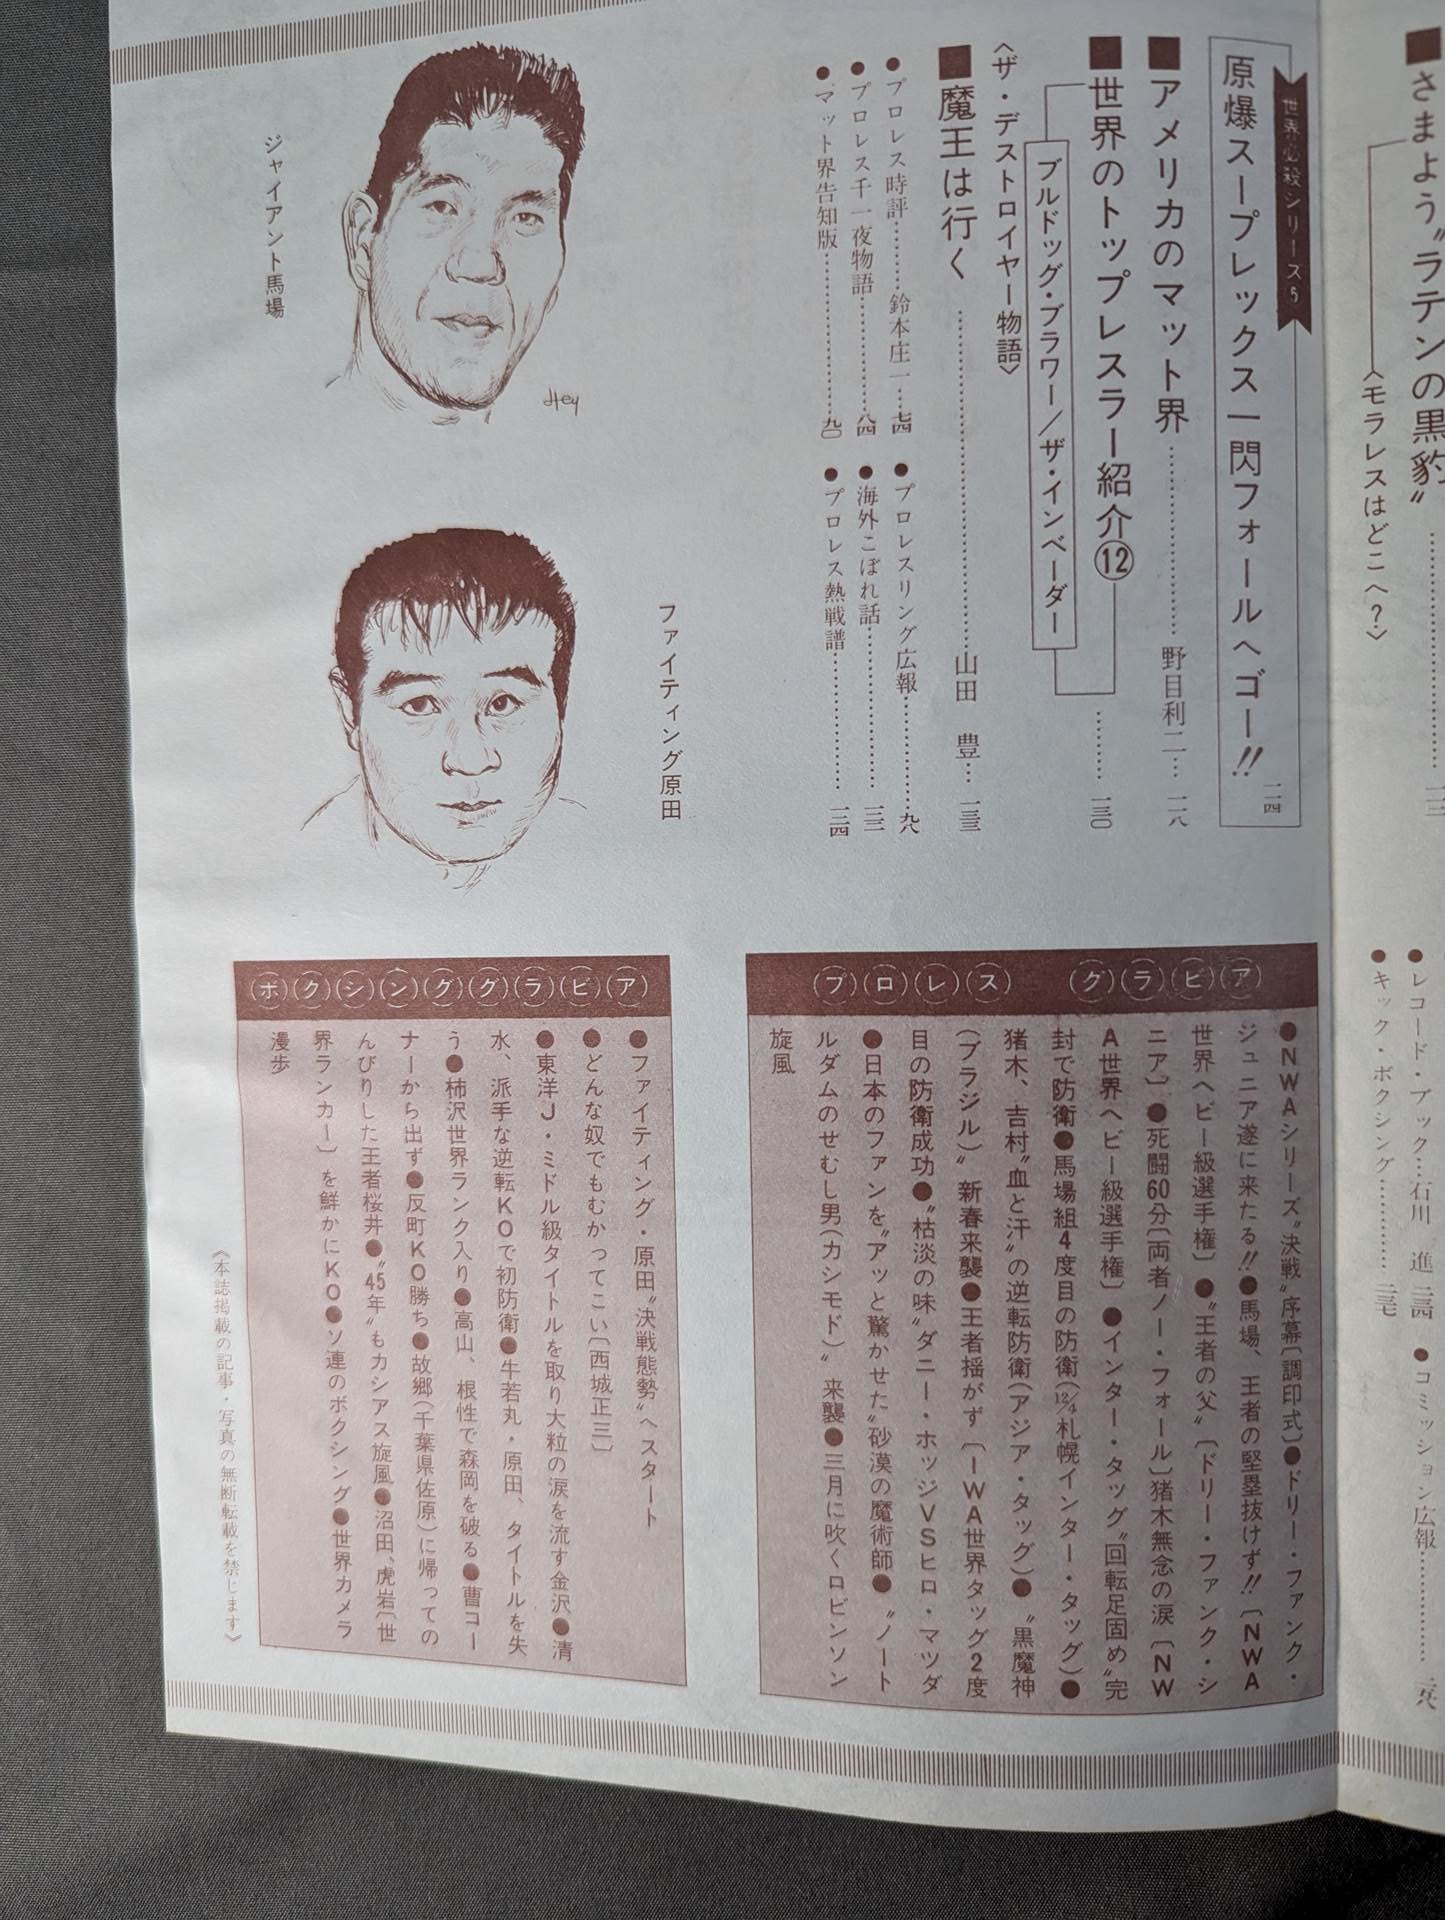 ■さまよう〝ラテンの黒豹〟
〈モラレスはどこへ？〉
世界必殺シリーズ5
原爆スープレックス一閃フォールへゴー!!
一一四
■アメリカのマット界……野目利二…一一八
■世界のトップレスラー紹介⑫……一三〇
ブルドッグ・ブラワー／ザ・インベーダー
〈ザ・デストロイヤー物語〉
■魔王は行く……山田　豊…一三三
●プロレス時評……鈴木庄一…七四
●プロレスリング広報……九八
●プロレス千一夜物語……八四
●海外こぼれ話……
●マット界告知版……九〇
●プロレス熱戦譜……一二四
ジャイアント馬場
Hey
ファイティング原田
●レコード・ブック…石川　進
●コミッション広報……
●キック・ボクシング……
プロレス　グラビア
●NWAシリーズ〝決戦〟序幕〔調印式〕●ドリー・ファンク・
ジュニア遂に来たる!!●馬場、王者の堅塁抜けず!!〔NWA
世界ヘビー級選手権〕●〝王者の父〟〔ドリー・ファンク・シ
ニア〕●死闘60分〔両者ノー・フォール〕猪木無念の涙〔NW
A世界ヘビー級選手権〕●インター・タッグ〝回転足固め〟完
封で防衛●馬場組4度目の防衛(12/4札幌インター・タッグ)●
猪木、吉村〝血と汗〟の逆転防衛(アジア・タッグ)●〝黒魔神
(ブラジル)〟新春来襲●王者揺がず〔IWA世界タッグ2度
目の防衛成功●〝枯淡の味〟ダニー・ホッジVSヒロ・マツダ
●日本のファンを〝アッと驚かせた〟砂漠の魔術師●〝ノート
ルダムのせむし男(カシモド)〟来襲●三月に吹くロビンソン
旋風
ボクシンググラビア
●ファイティング・原田〝決戦態勢〟へスタート
●どんな奴でもむかってこい〔西城正三〕
●東洋J・ミドル級タイトルを取り大粒の涙を流す金沢●清
水、派手な逆転KOで初防衛●牛若丸・原田、タイトルを失
う●柿沢世界ランク入り●高山、根性で森岡を破る●曹コー
ナーから出ず●反町KO勝ち●故郷(千葉県佐原)に帰っての
んびりした王者桜井●〝45年〟もカシアス旋風●沼田、虎岩〔世
界ランカー〕を鮮かにKO●ソ連のボクシング●世界カメラ
漫歩
〈本誌掲載の記事・写真の無断転載を禁じます〉